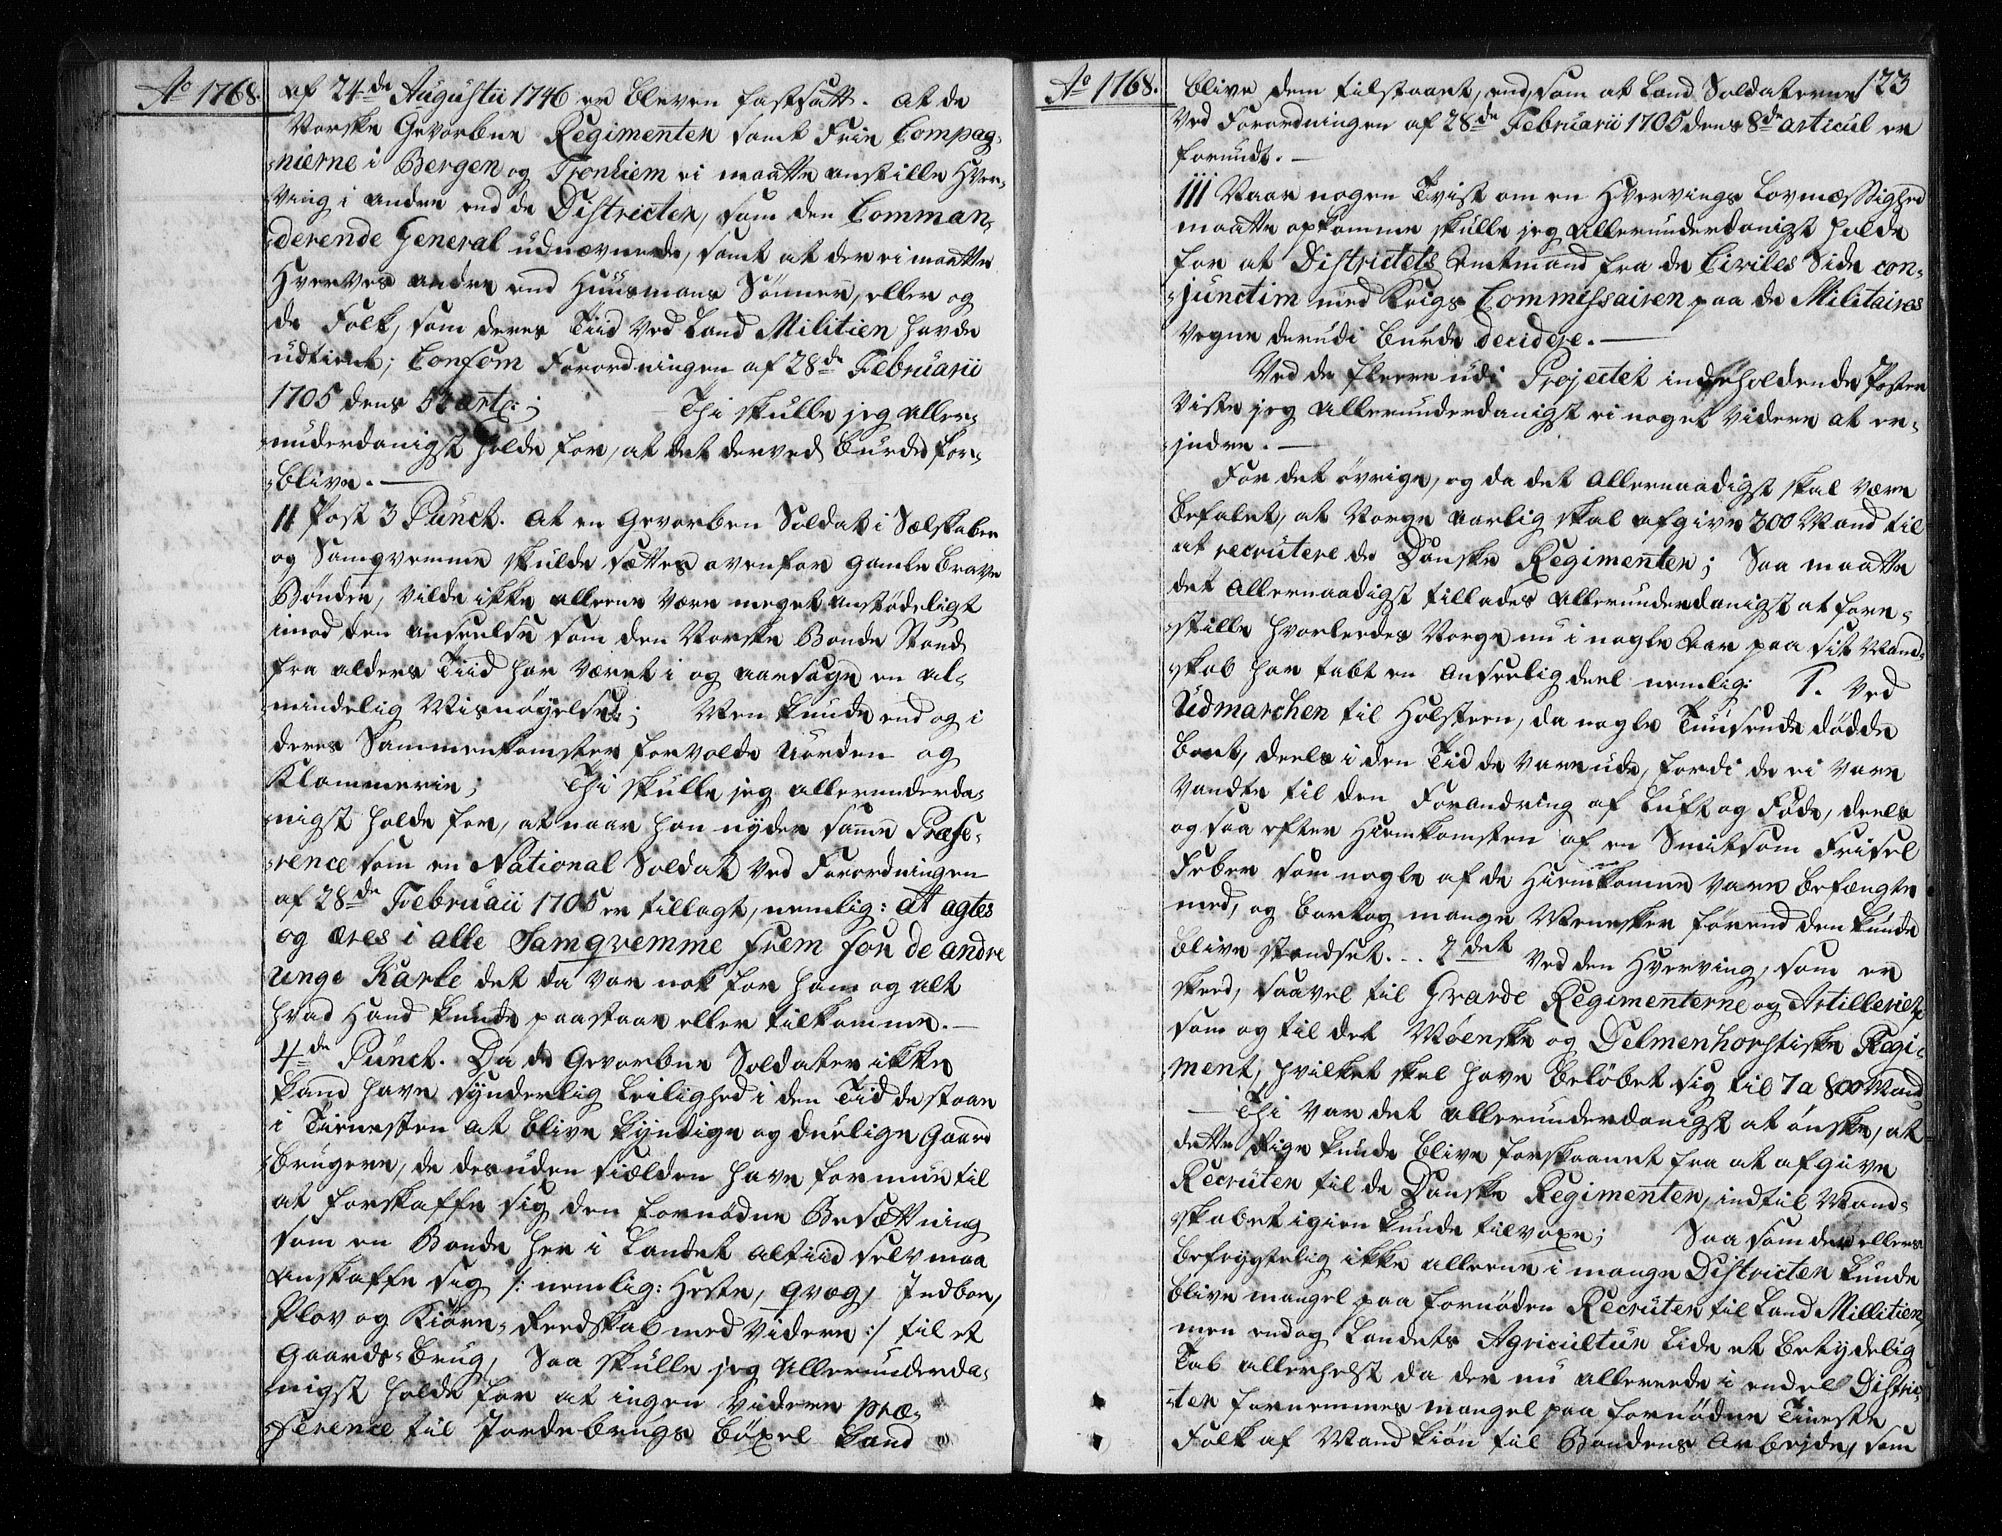 Ao 1768.
af 24de Augustii 1746 er bleven fastsatt. at de
Norske Gevorbne Regimenter samt Frie Compag-
nierne i Bergen og Tronhiem ei maatte anstille Hver-
ving i andre end de Districter, som den Comman-
derende General udnævnede, samt at der ei maatte
Hverves andre end Huusmans Sønner, eller og
de Folk, som deres Tiid ved Land Militien havde
udtient; Conform Forordningen af 28de Februarii
1705 dens 5te artc: ; Thi skulle jeg aller-
underdanigst holde for, at det derved burde for-
blive.
II Post 3 Punct. At en Gevorben Soldat i Sælskaber
og Samqvemme skulde sættes ovenfor gamle brave
Bønder, vilde ikke alleene være meget anstødeligt
imod den anseelse som den Norske Bonde Stand
fra alders Tiid har været i og aarsage en al-
mindelig Misnøyelse; Men kunde end og i
deres Sammenkomster forvolde Uorden og
Klammerie; Thi skulle jeg allerunderda-
nigst holde for, at naar han nyder samme Præfe-
rence som en National Soldat ved Forordningen
af 28de Februarii 1705 er tillagt, nemlig: at agtes
og æres i alle Samqvemme frem for de andre
unge Karle det da var nok for ham og alt
hvad Hand kunde paastaae eller tilkomme.
4de Punct. Da de Gevorbne Soldater ikke
kand have synderlig Leilighed i den Tid de staar
i Tienesten at blive kyndige og duelige Gaard
brugere, de desuden sielden have formue til
at forskaffe sig den fornødne Besættning
som en Bonde her i Landet altiid selv maa
anskaffe sig /: nemlig: Heste, qvæg, Indboe,
Plov og Kiøre-Reedskab med videre :/ til et
Gaards-brug, Saa skulle jeg allerunderda-
nigst holde for at ingen videre præ-
ference til Jordebrugs bøxel kand
Ao 1768.
123
blive dem tilstaaet, end, som at Land Soldaterne
ved Forordningen af 28de Februarii 1705 dens 8de articul er
forundt.
III Naar nogen Tvist om en Hvervings Lovmæssighed
maatte opkomme skulle jeg allerunderdanigst holde
for at Districtets Amtmand fra de Civiles Side con-
junctim med Krigs Commissairen paa de Militaires
vegne derudi burde decidere.
Ved de fleere udi Projectet indeholdende Poster
viste jeg allerunderdanigst ei noget videre at er-
indre.
For det øvrige, og da det Allernaadigst skal være
befalet, at Norge aarlig skal afgive 300 Mand til
at recrutere de Danske Regimenter; Saa maatte
det Allernaadigst tillades allerunderdanigst at fore-
stille hvorledes Norge nu i nogle Aar paa sit Mand-
skab har tabt en anseelig deel nemlig: 1. Ved
Udmarchen til Holsteen, da nogle Tuusende døde
bort, deels i den Tid de vare ude, fordi de ei vare
vandte til den Forandring af Luft og Føde, deels
og saa efter Hiemkomsten af en Smitsom Frisel
Feber som nogle af de Hiemkomne vare befængte
med, og bortog mange Mennesker førend den kunde
blive standset. .. 2det Ved den Hverving, som er
skeed, saavel til Garde Regimenterne og Artilleriet
som og til det Møenske og Delmenhorstiske Regi-
ment, hvilket skal have beløbet sig til 7 a 800 Mand
Thi var det allerunderdanigst at ønske, at
dette Rige kunde blive forskaanet fra at afgive
Recruter til de Danske Regimenter, indtil Mand-
skabet igien kunde tilvoxe; Saa som der ellers
befrygtelig ikke alleene i mange Districter kunde
blive mangel paa fornøden Recruter til Land Millitien,
men endog Landets Agricultur lide et betydelig
Tab allerhelst da der nu allereede i endel Distric-
ter fornemmes mangel paa fornødne Tieneste
Folk af Mandkiøn til Bondens Arbeide, som